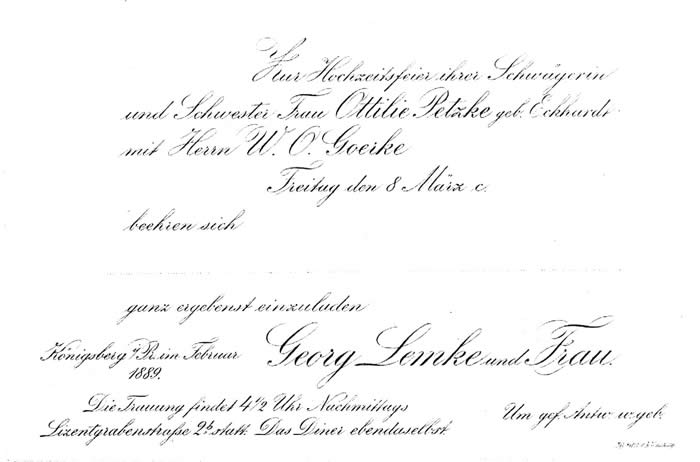 Zur Hochzeitsfeier ihrer Schwägerin
und Schwester Frau Ottilie Petzke geb. Eckhardt
mit Herrn W. O. Goerke
Freitag den 8 März c.
beehren sich
ganz ergebenst einzuladen
Königsberg i/Pr. im Februar
1889.
Georg Lemke und Frau.
Die Trauung findet 4 1/2 Uhr Nachmittags
Lizentgrabenstraße 2b. statt. Das Diner ebendaselbst
Um gef. Antw. w. geb.